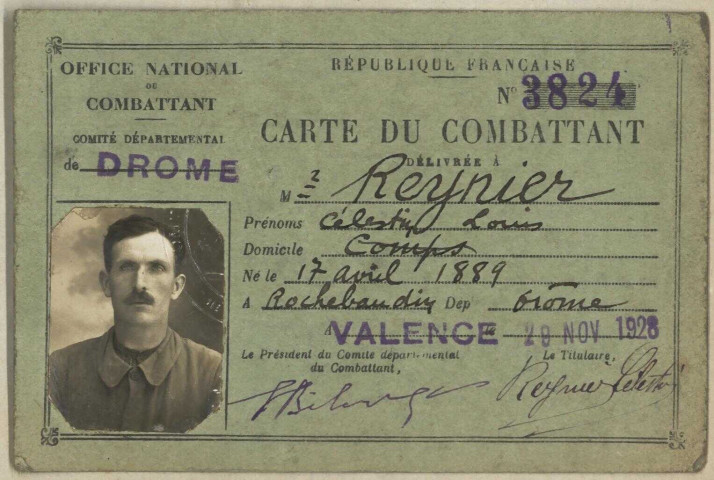 OFFICE NATIONAL
DU
COMBATTANT
COMITÉ DÉPARTEMENTAL
de DROME
RÉPUBLIQUE FRANÇAISE
N° 3824
CARTE DU COMBATTANT
DÉLIVRÉE À
M r Reynier
Prénoms Célestin Louis
Domicile Comps
Né le 17 avril 1889
A Rochebaudin Dep Drôme
A VALENCE le 29 NOV 1928
Le Président du Comité départemental
du Combattant,
Le Titulaire,
Reynier Célestin